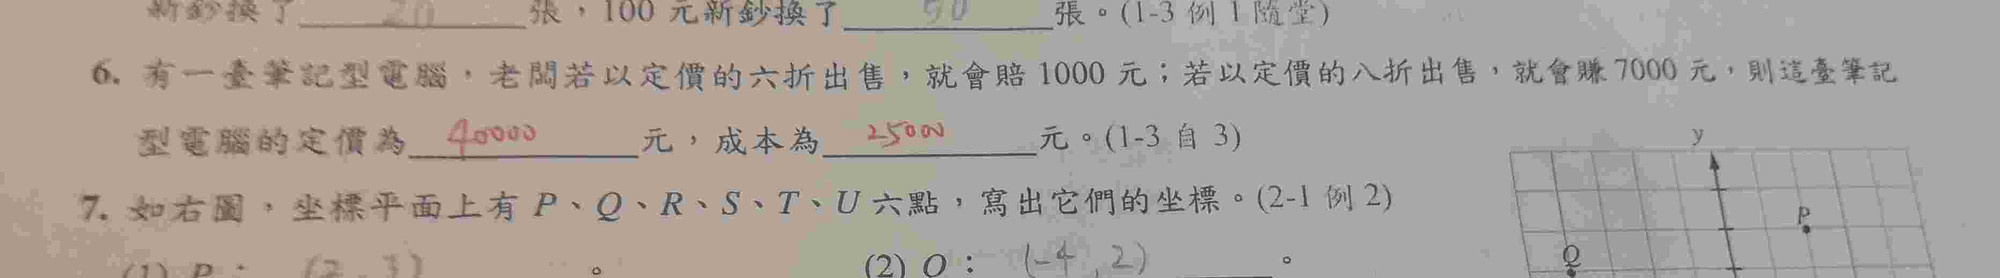 新鈔換了 20 張,100 元新鈔換了 50 張。(1-3 例 1 隨堂)
6. 有一臺筆記型電腦,老闆若以定價的六折出售,就會賠 1000 元;若以定價的八折出售,就會賺 7000 元,則這臺筆記
型電腦的定價為 40000 元,成本為 25000 元。(1-3 自 3)
7. 如右圖,坐標平面上有 P、Q、R、S、T、U 六點,寫出它們的坐標。(2-1 例 2)
(1) P: (2,3)。 (2) Q: (-4,2)。
y
P
Q